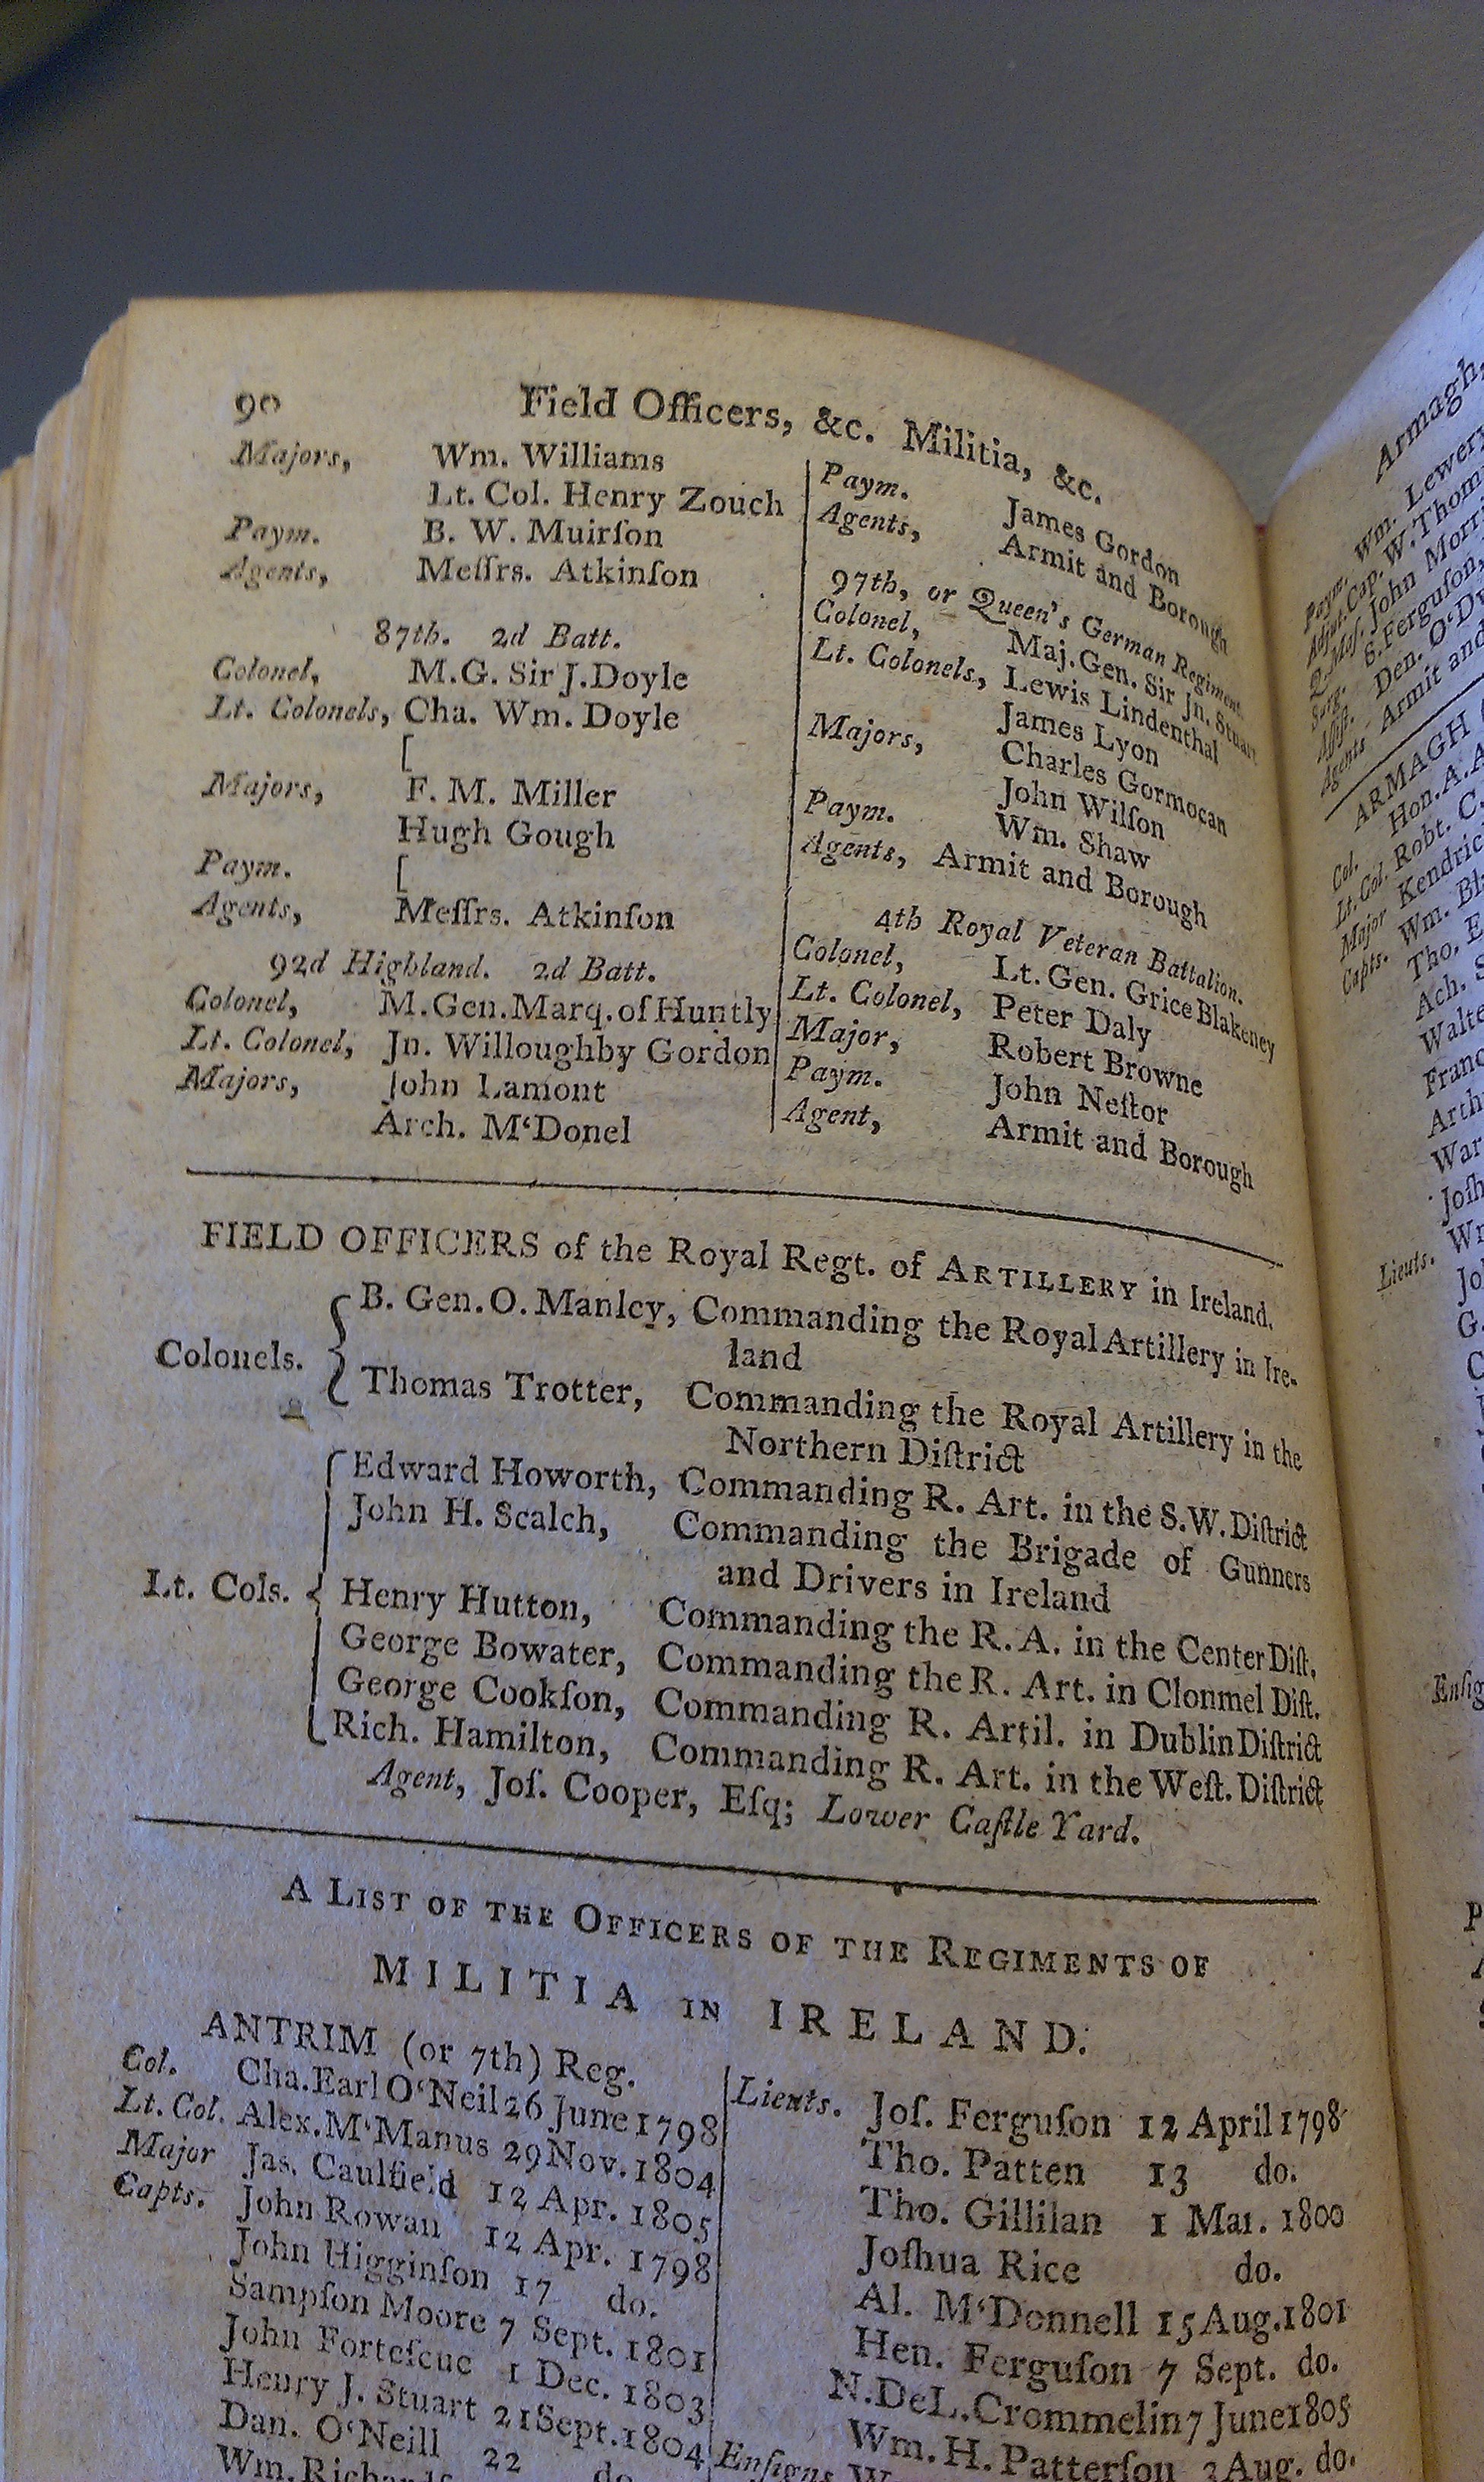 90 Field Officers, &c. Militia, &c.
Majors, Wm. Williams
Lt. Col. Henry Zouch
Paym. B. W. Muirſon
Agents, Meſſrs. Atkinſon
87th. 2d Batt.
Colonel, M.G. Sir J.Doyle
Lt. Colonels, Cha. Wm. Doyle
[
Majors, F. M. Miller
Hugh Gough
Paym. [
Agents, Meſſrs. Atkinſon
92d Highland. 2d Batt.
Colonel, M.Gen.Marq.of Huntly
Lt. Colonel, Jn. Willoughby Gordon
Majors, John Lamont
Arch. M‘Donel
Paym. James Gordon
Agents, Armit and Borough
97th, or Queen's German Regiment
Colonel, Maj.Gen. Sir Jn. Stuart
Lt. Colonels, Lewis Lindenthal
James Lyon
Majors, Charles Gormocan
John Wilſon
Paym. Wm. Shaw
Agents, Armit and Borough
4th Royal Veteran Battalion.
Colonel, Lt. Gen. Grice Blakeney
Lt. Colonel, Peter Daly
Major, Robert Browne
Paym. John Neſtor
Agent, Armit and Borough
FIELD OFFICERS of the Royal Regt. of ARTILLERY in Ireland.
Colonels. B. Gen. O. Manley, Commanding the Royal Artillery in Ire-
land
Thomas Trotter, Commanding the Royal Artillery in the
Northern Diſtrict
Lt. Cols. Edward Howorth, Commanding R. Art. in the S.W. Diſtrict
John H. Scalch, Commanding the Brigade of Gunners
and Drivers in Ireland
Henry Hutton, Commanding the R. A. in the Center Diſt.
George Bowater, Commanding the R. Art. in Clonmel Diſt.
George Cookſon, Commanding R. Artil. in Dublin Diſtrict
Rich. Hamilton, Commanding R. Art. in the Weſt. Diſtrict
Agent, Joſ. Cooper, Eſq; Lower Caſtle Yard.
A LIST OF THE OFFICERS OF THE REGIMENTS OF
MILITIA IN IRELAND.
ANTRIM (or 7th) Reg.
Col. Cha.Earl O‘Neil 26 June 1798
Lt. Col. Alex. M‘Manus 29 Nov. 1804
Major Jas. Caulfield 12 Apr. 1805
Capts. John Rowan 12 Apr. 1798
John Higginſon 17 do.
Sampſon Moore 7 Sept. 1801
John Forteſcue 1 Dec. 1803
Henry J. Stuart 21 Sept. 1804
Dan. O‘Neill 22 do
Lieuts. Joſ. Ferguſon 12 April 1798
Tho. Patten 13 do.
Tho. Gillilan 1 Mar. 1800
Joſhua Rice do.
Al. M‘Donnell 15 Aug. 1801
Hen. Ferguſon 7 Sept. do.
N.DeL.Crommelin 7 June 1805
Wm. H. Patterſon 3 Aug. do.
Enſigns
Armagh,
Paym. Wm. Lewery
Adjut. Cap. W. Thom
Q.Maſ. John Morr
Surg. S. Ferguſon,
Aſſiſt. Den. O‘D
Agents Armit and
ARMAGH
Col. Hon. A. A
Lt. Col. Robt. C.
Major Kendric
Capts. Wm. Bl
Tho. E
Ach. S
Walte
Franc
Arth
War
Joſh
Lieuts. Wr
Jo
G.
Enſig